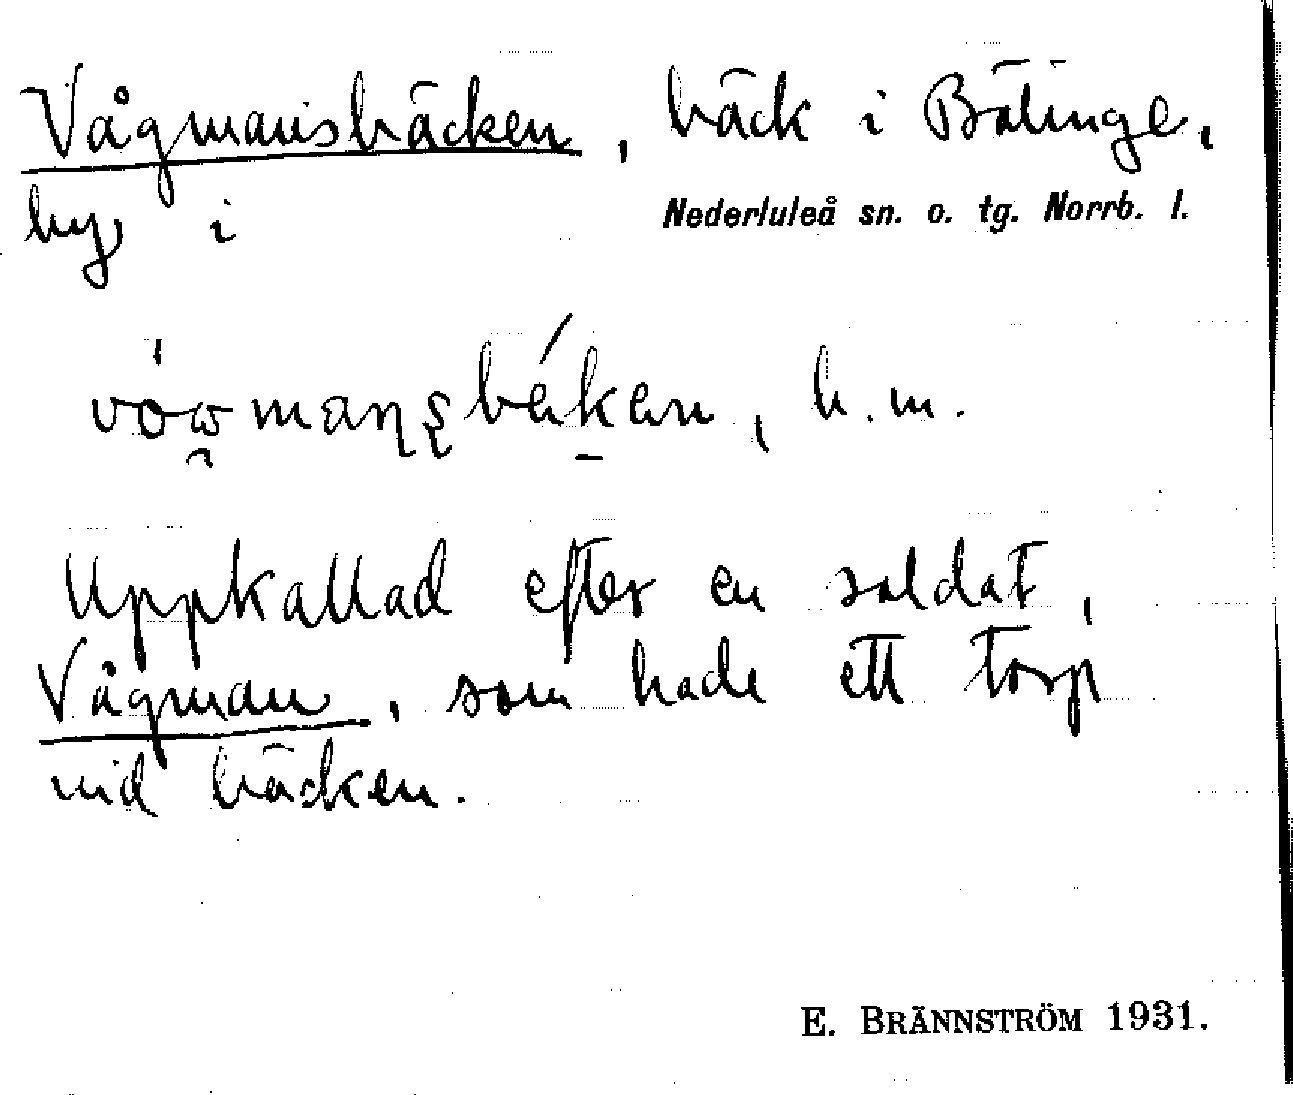 Vågmansbäcken, bäck i Bälinge,
by i Nederluleå sn. o. tg. Norrb. l.
b. m.
Uppkallad efter en soldat,
Vågman, som hade ett torp
vid bäcken.
E. BRÄNNSTRÖM 1931.